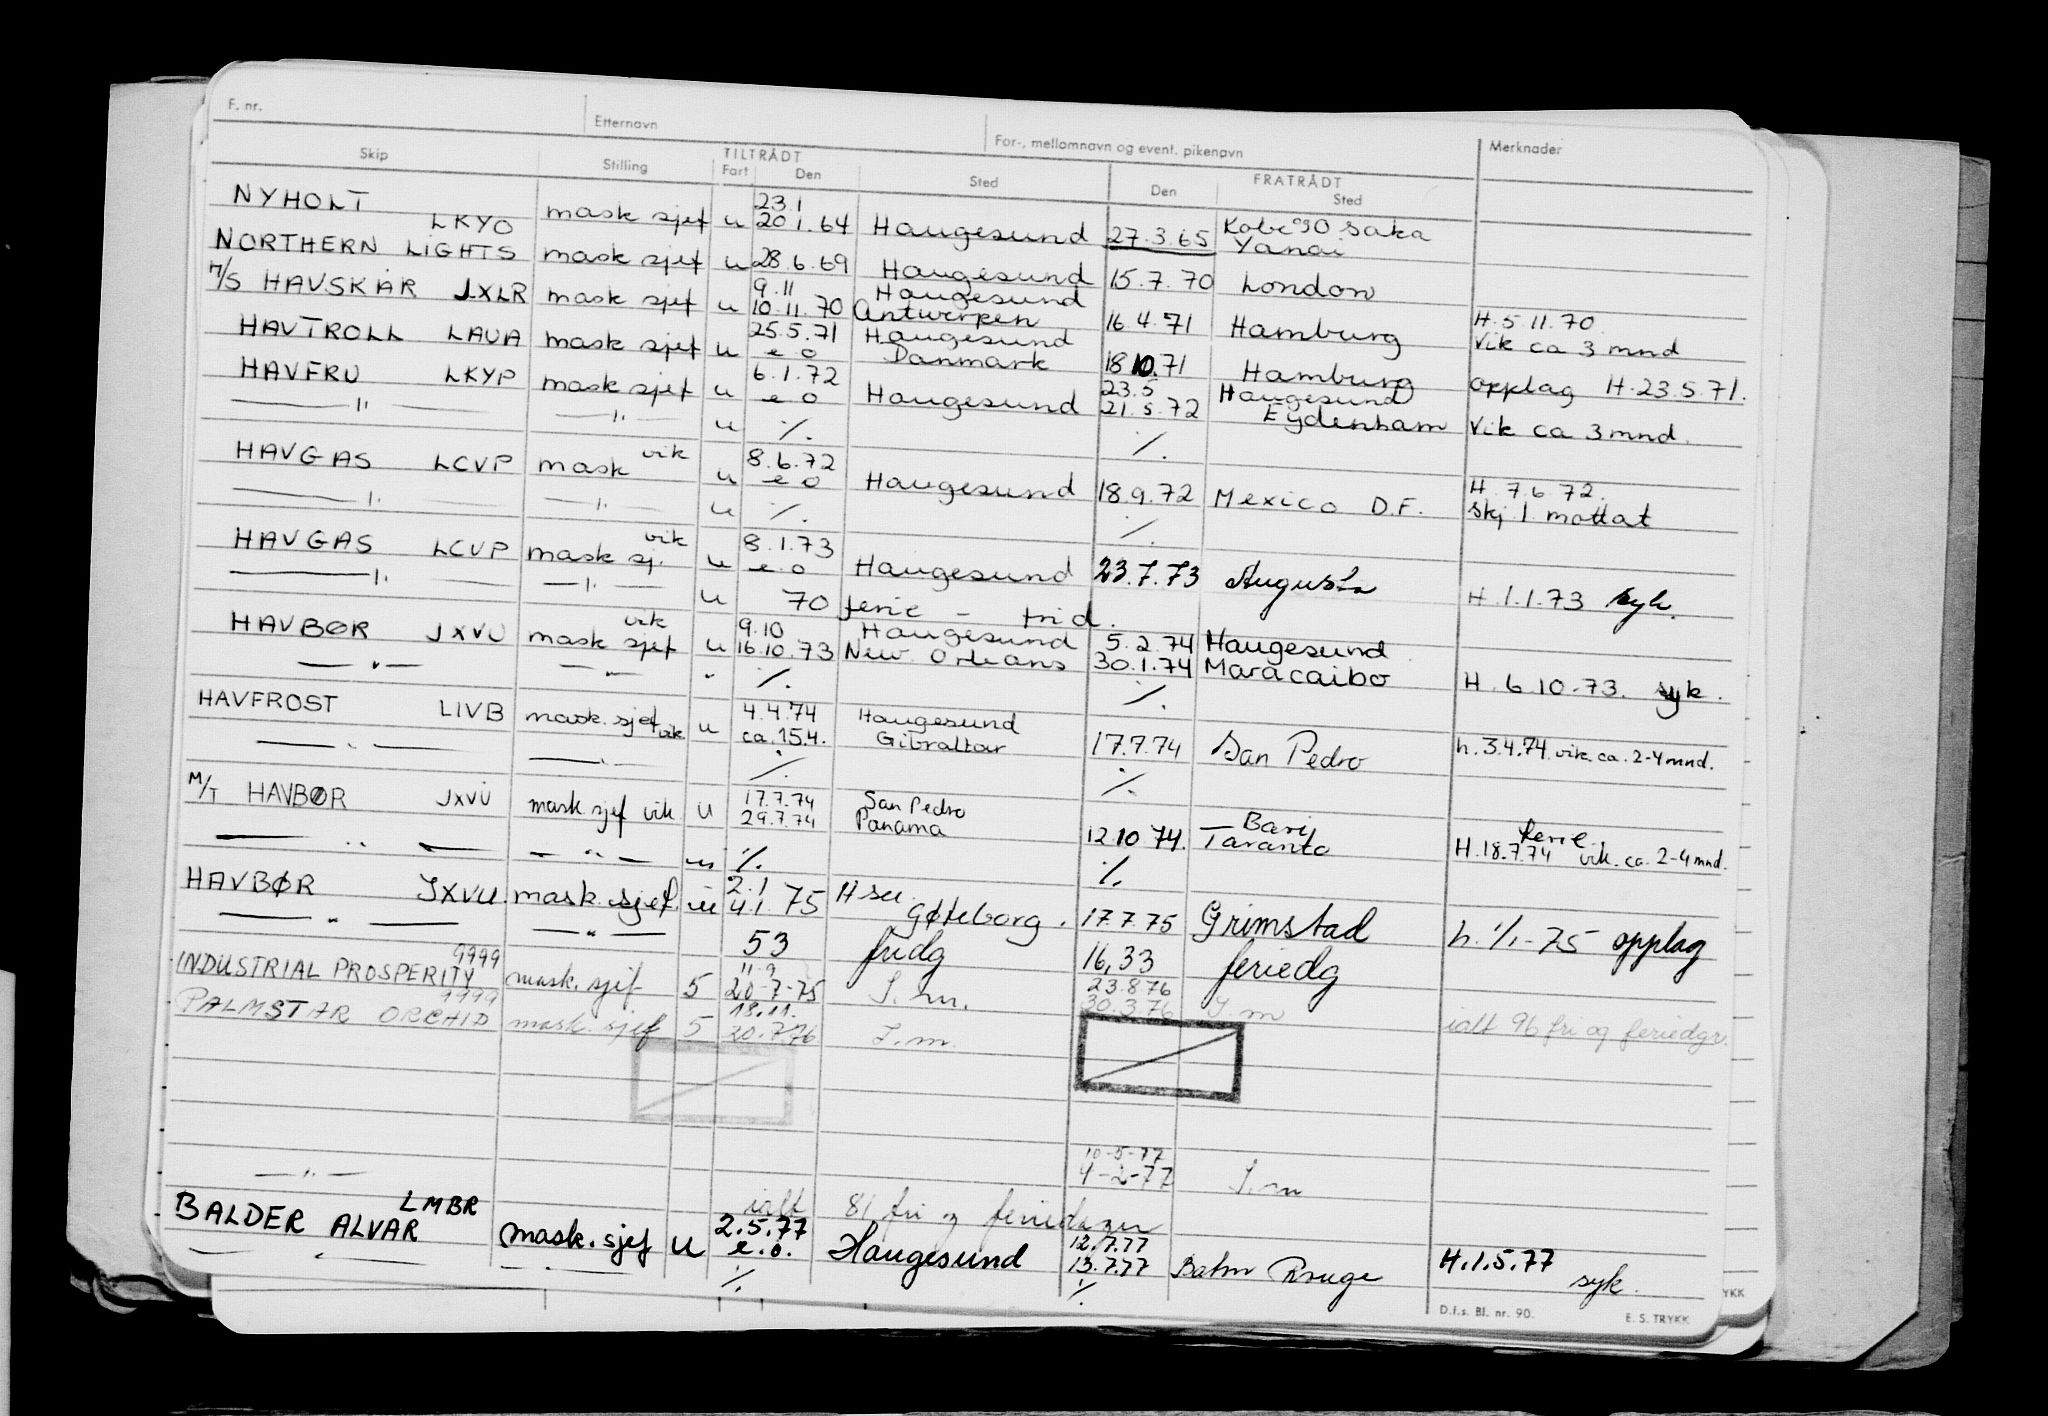 F. nr. Etternavn For-, mellomnavn og event. pikenavn Merknader
Skip Stilling TILTRÅDT Fart Den Sted FRATRÅDT Den Sted
NYHOLT 23.1
LKYO mask sjef u 20 1.64 Haugesund 27.3.65 Kobe Yanai
NORTHERN LIGHTS mask sjef u 28.6.69 Haugesund 15.7.70 London
M/S HAVSKÅR JXLR mask sjef u 9.11 Haugesund
10.11.70 Antwerpen 16 4.71 Hamburg H.5 11.70.
Vik ca 3 mnd
HAVTROLL LAUA mask sjef u 25.5.71 Haugesund
e o Danmark 18 10.71 Hamburg opplag H.23.5.71.
HAVFRU LKYP mask sjef u 6.1.72 23.5 Haugesund
e o Haugesund 21.5.72 Eydenham Vik ca 3 mnd.
—"— —"— u ./. ./.
HAVGAS LCVP mask vik u 8.6.72
e o Haugesund 18.9.72 Mexico D.F. H. 7.6 72.
skj 1 mottat
—"— —"— u ./. ./.
HAVGAS LCVP mask sj. vik u 8.1.73
e.o Haugesund 23.7.73 Augusta H.1.1.73 syk.
—"— —"— u 70 ferie - frid.
HAVBØR JXVU mask sjef vik u 9.10 Haugesund 5.2.74 Haugesund
16.10.73 New Orleans 30.1.74 Maracaibo H. 6 10.73. syk.
—"— — " ./. ./.
HAVFROST LIVB mask. sjef vik u 4.4.74 Haugesund
ca.15.4. Gibraltar 17.7.74 San Pedro h.3.4.74 vik. ca. 2-4 mnd.
—"— —"— ./. ./.
M/T HAVBØR JXVU mask sjef vik u 17.7.74 San Pedro
29.7.74 Panama 12 10 74. Bari
Taranto ferie
H.18.7.74 vik. ca. 2-4 mnd.
—"— —"— ./. ./.
HAVBØR JXVU. mask. sjef. u 2.1
4.1.75 Hsu
Gøteborg. 17.7.75 Grimstad h. 1/1-75 opplag
—"— —"— 53 fridg 16,33 feriedg
INDUSTRIAL PROSPERITY 9999 mask. sjef 5 11.9
20-7-75 I.m. 23.8 76
30.3.76 I m
PALMSTAR ORCHID 9999 mask. sjef 5 18.11.
20.7.76 I.m. ialt 96 fri og feriedgr.
10-5-77
4-2-77 I.m
—"— ialt 81 fri og feriedager
BALDER ALVAR LMBR mask. sjef u 2.5.77
e.o. Haugesund 12.7.77
13.7.77 H.1.5.77
syk.
—"— —"— ./. ./.
D.f.s. Bl. nr. 90. E. S. TRYKK
YKK